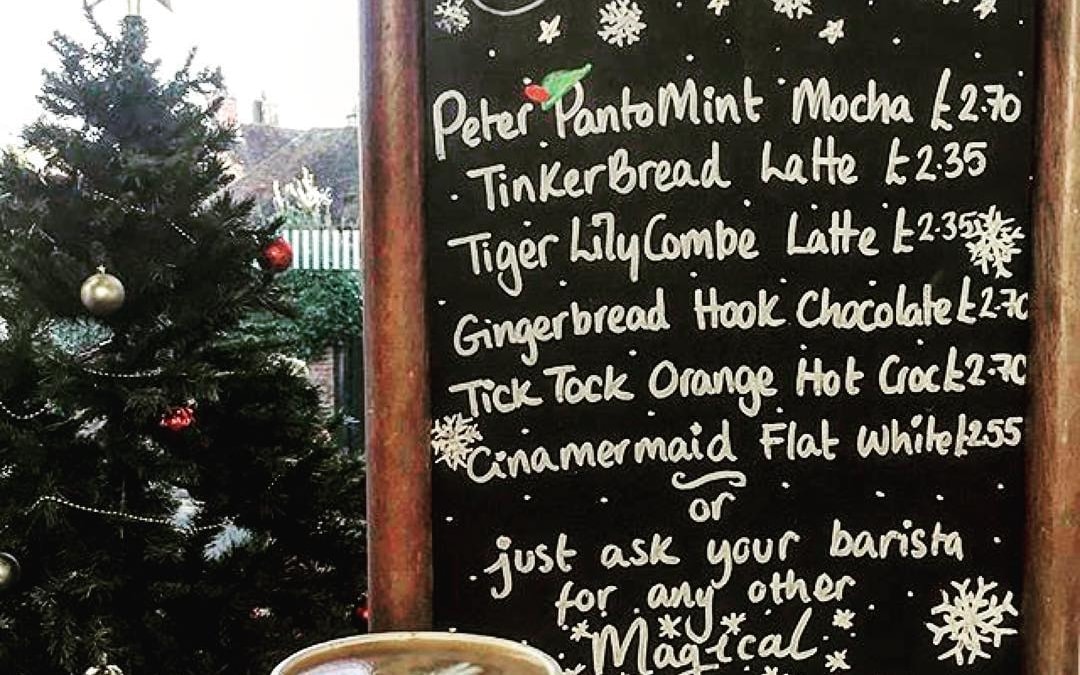 Peter PantoMint Mocha £2.70
TinkerBread Latte £2.35
Tiger LilyCombe Latte £2.35
Gingerbread Hook Chocolate £2.70
Tick Tock Orange Hot Croc £2.70
Cinamermaid Flat White £2.55
or
just ask your barista
for any other
Magical